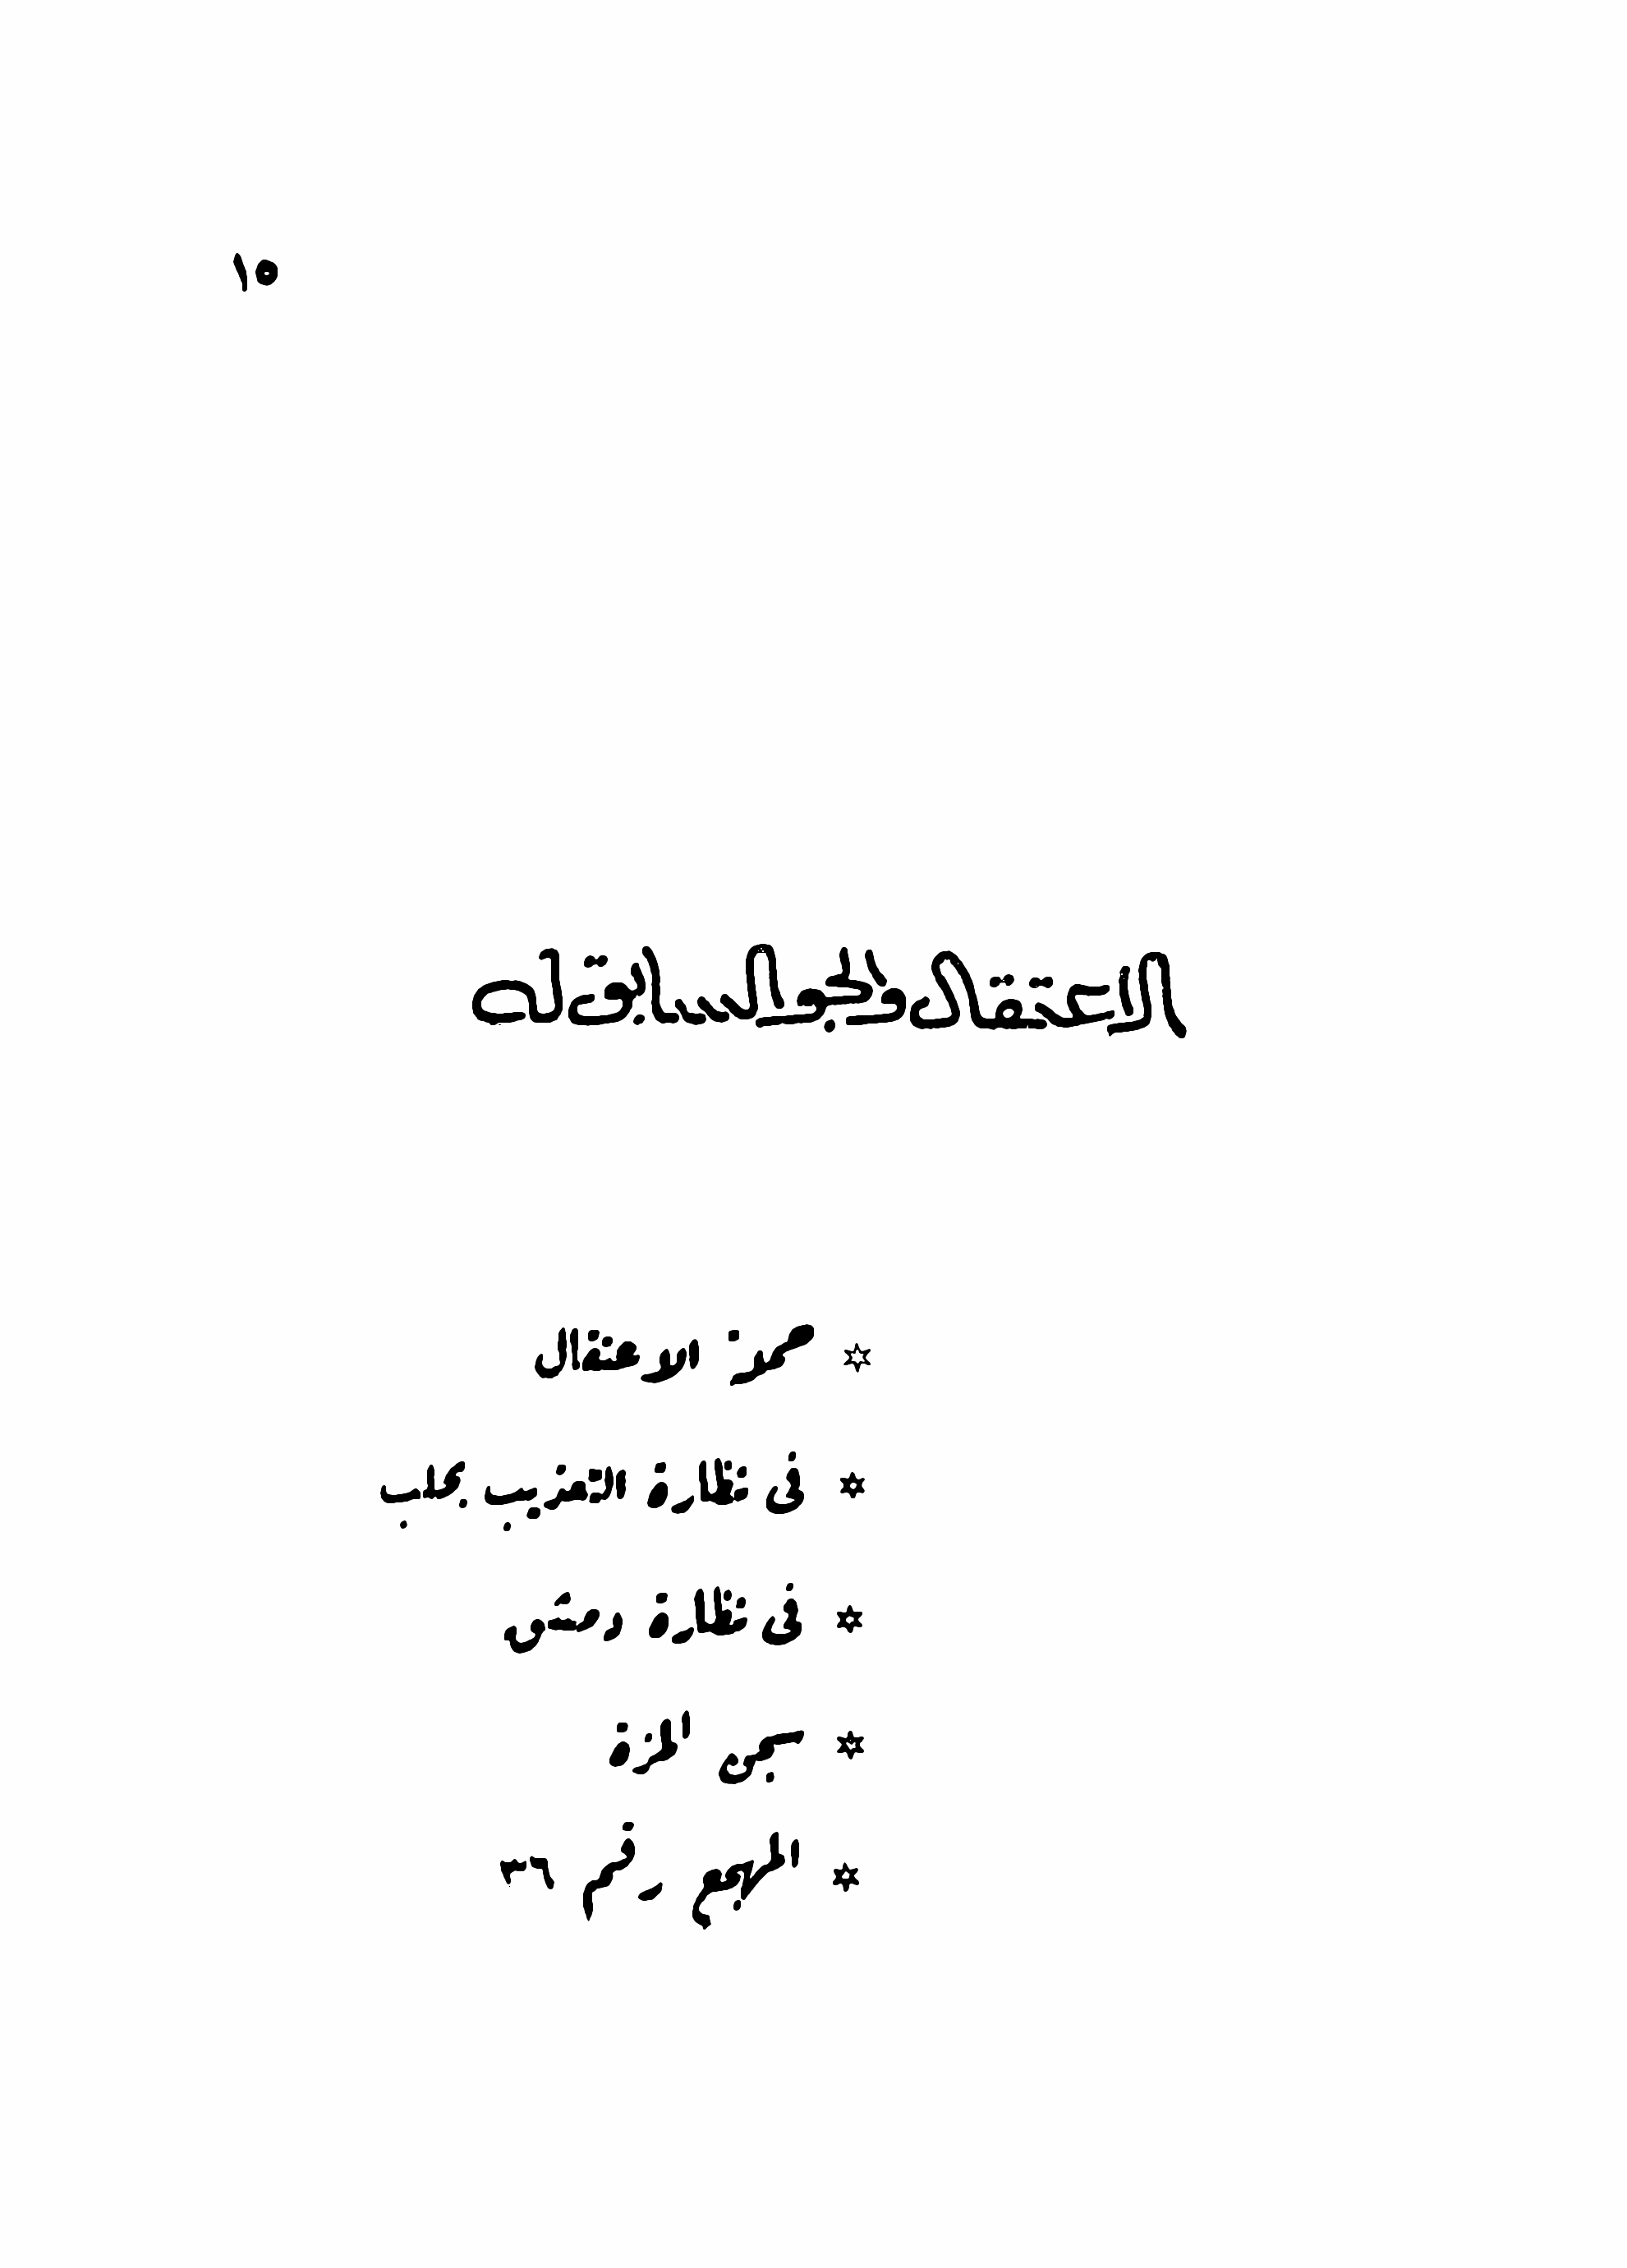 ١٥
الاعتقال والجو السابق له
* الاعتقال
* فى نظارة التعذيب بحلب
* فى نظارة دمشق
* سجن المزة
* المهجع رقم ٣٦